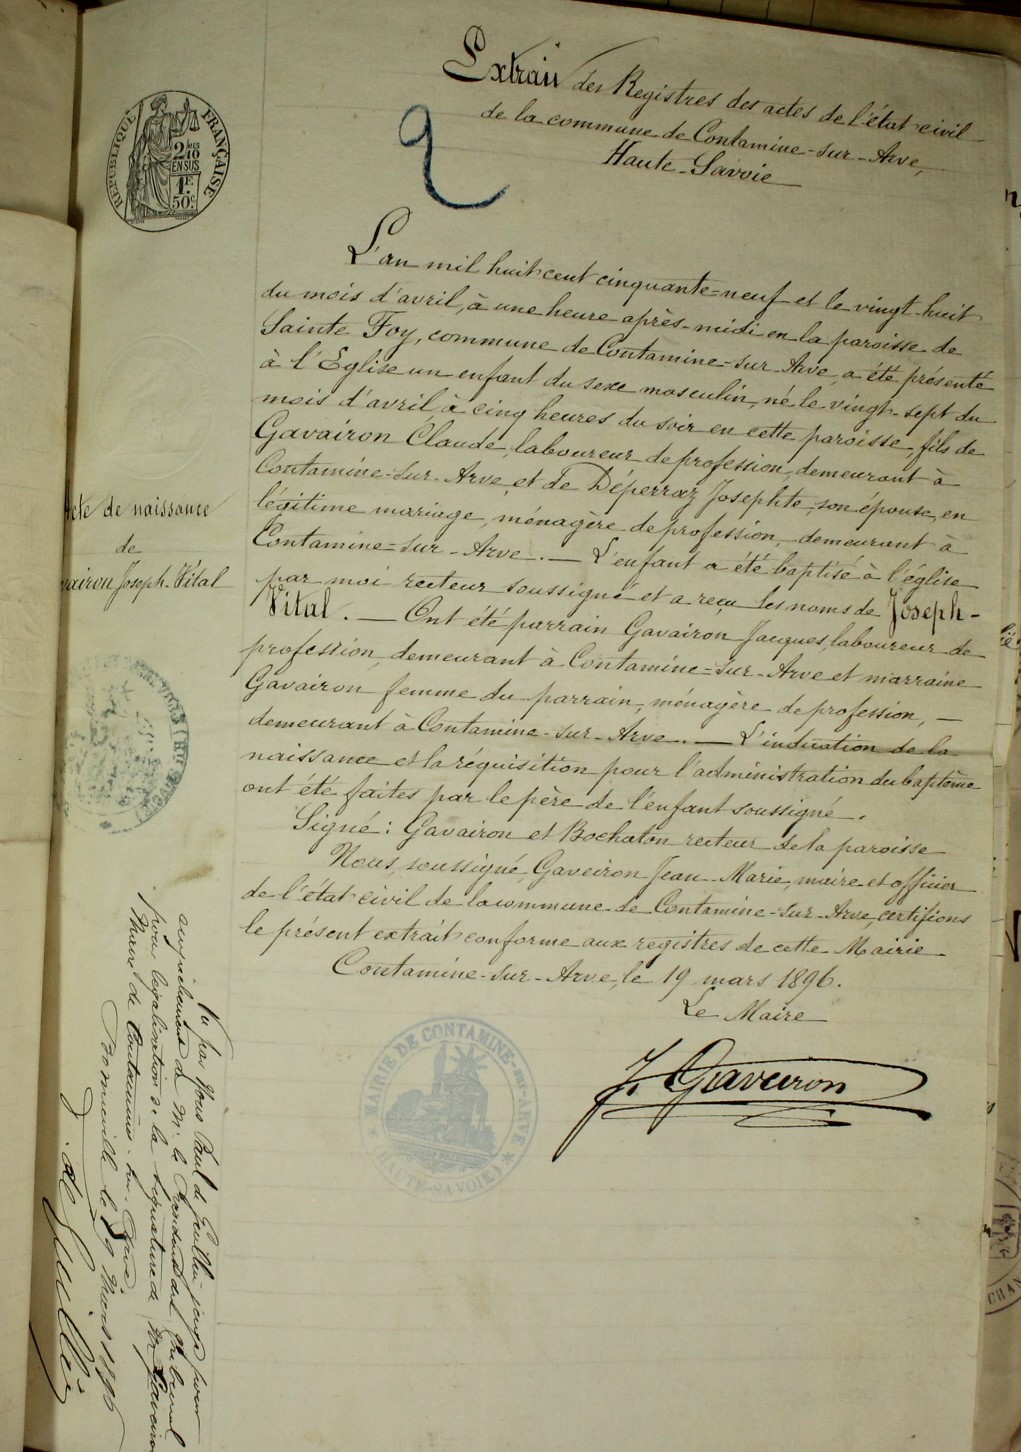 Extrait des Registres des actes de l'état civil
de la commune de Contamine-sur-Arve,
Haute-Savoie
2
RÉPUBLIQUE FRANÇAISE
2/10
EN SUS
1F.
50c.
L'an mil huit cent cinquante-neuf et le vingt-huit
du mois d'avril, à une heure après-midi en la paroisse de
Sainte Foy, commune de Contamine-sur-Arve, a été présenté
à l'Eglise un enfant du sexe masculin, né le vingt-sept du
mois d'avril à cinq heures du soir en cette paroisse, fils de
Gavairon Claude, laboureur de profession, demeurant à
Contamine-sur-Arve, et de Déperraz Josephte, son épouse, en
légitime mariage, ménagère de profession, demeurant à
Contamine-sur-Arve. — L'enfant a été baptisé à l'église
par moi recteur soussigné et a reçu les noms de Joseph-
Vital. — Ont été parrain Gavairon Jacques, laboureur de
profession, demeurant à Contamine-sur-Arve et marraine
Gavairon femme du parrain, ménagère de profession, —
demeurant à Contamine-sur-Arve. — L'indication de la
naissance et la réquisition pour l'administration du baptême
ont été faites par le père de l'enfant soussigné.
Signé : Gavairon et Bochaton recteur de la paroisse
Nous, soussigné Gaveiron Jean-Marie, maire et officier
de l'état civil de la commune de Contamine-sur-Arve, certifions
le présent extrait conforme aux registres de cette Mairie
Contamine-sur-Arve, le 19 mars 1896.
Le Maire
J. Gaveiron
MAIRIE DE CONTAMINE-sur-ARVE
(HAUTE-SAVOIE)
Acte de naissance
de
vairon Joseph-Vital
Vu par Nous Paul de juge pour
empêchement de M. le Président du Tribunal
pour légalisation de la signature de Mr Gaveiron
Maire de Contamine-sur-Arve
Bonneville le 19 Mars 1896